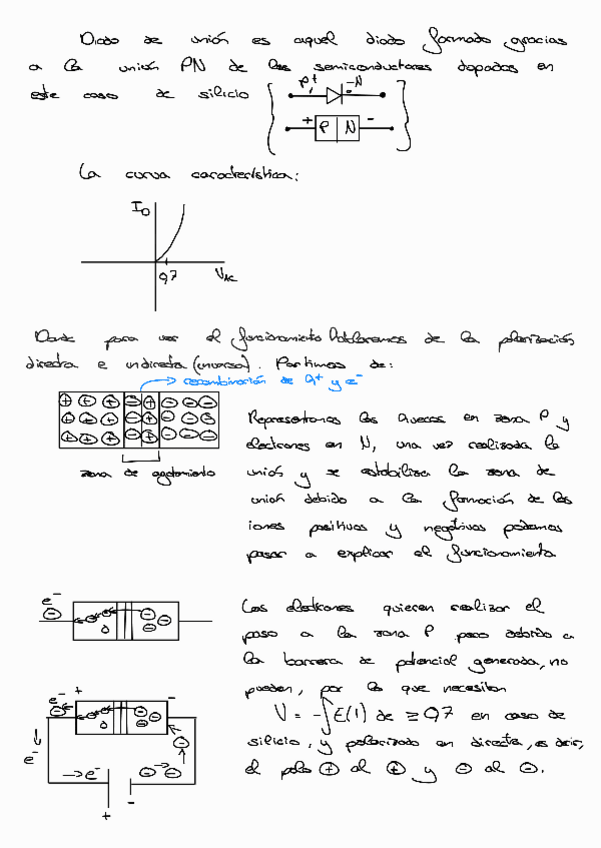 Diodo de unión es aquel diodo formado gracias
a la unión PN de los semiconductores dopados en
este caso de silicio
P+ -N
+ P N -
La curva característica:
I_D
0,7 V_AC
para ver el funcionamiento hablaremos de la polarización
directa e indirecta (inversa). Partimos de:
recombinación de h+ y e-
zona de agotamiento
Representamos los huecos en zona P y
electrones en N, una vez realizada la
unión y se estabiliza la zona de
unión debido a la formación de los
iones positivos y negativos podemos
pasar a explicar el funcionamiento
e-
Los electrones quieren realizar el
paso a la zona P pero debido a
la barrera de potencial generada, no
pueden, por lo que necesitan
V = -∫E(l) de ≥ 0,7 en caso de
silicio, y polarizado en directa, es decir,
el polo ⊕ al ⊕ y ⊖ al ⊖.
e- + -
e-
→ e-
+ -